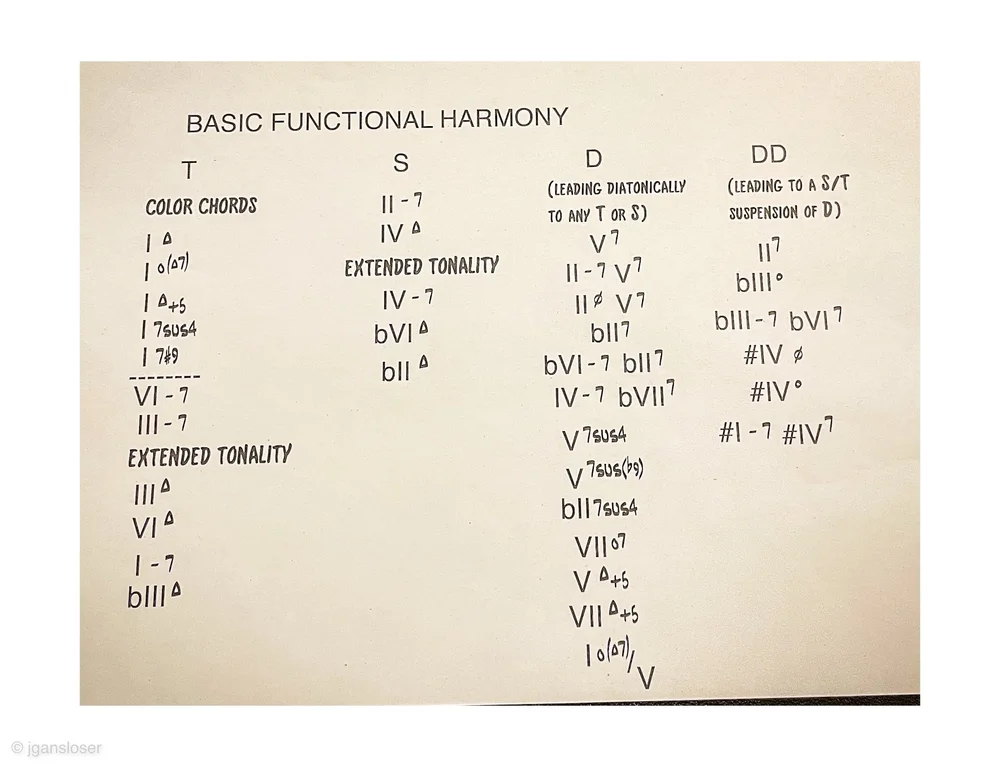 BASIC FUNCTIONAL HARMONY
T
COLOR CHORDS
I Δ
I o(Δ7)
I Δ+5
I 7sus4
I 7#9
--------
VI-7
III-7
EXTENDED TONALITY
III Δ
VI Δ
I-7
bIII Δ
S
II-7
IV Δ
EXTENDED TONALITY
IV-7
bVI Δ
bII Δ
D
(LEADING DIATONICALLY
TO ANY T OR S)
V7
II-7 V7
IIø V7
bII7
bVI-7 bII7
IV-7 bVII7
V7sus4
V7sus(b9)
bII7sus4
VIIo7
V Δ+5
VII Δ+5
I o(Δ7)/V
DD
(LEADING TO A S/T
SUSPENSION OF D)
II7
bIII°
bIII-7 bVI7
#IV ø
#IV°
#I-7 #IV7
© jgansloser